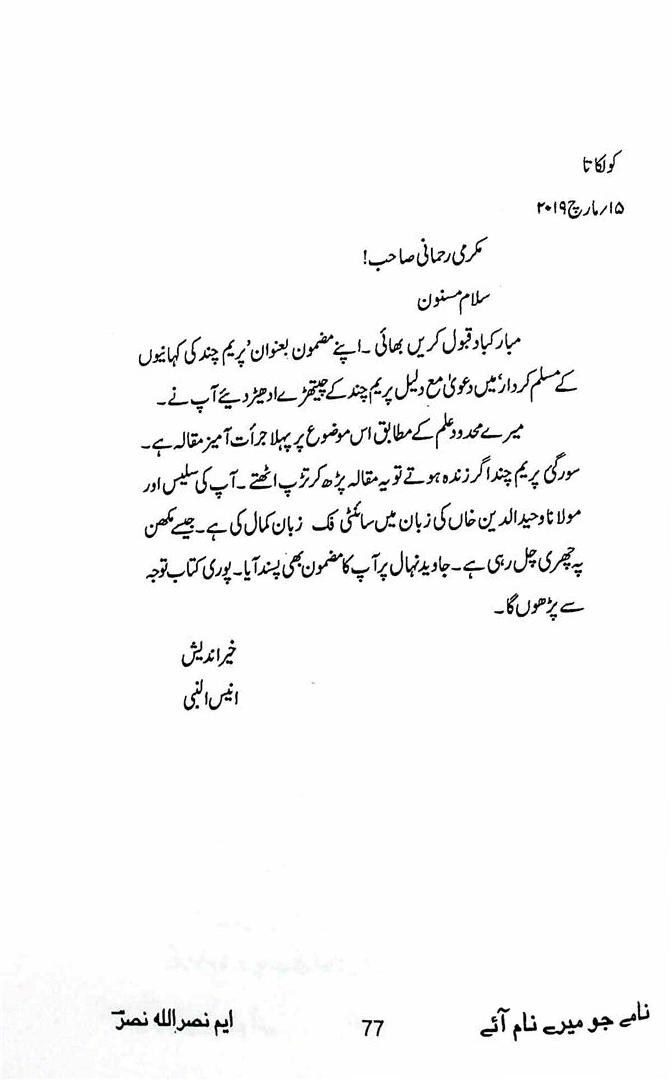 کولکاتا
۱۵؍مارچ ۲۰۱۹
مکرمی رحمانی صاحب!
سلام مسنون
مبارکباد قبول کریں بھائی ۔ اپنے مضمون بعنوان 'پریم چند کی کہانیوں
کے مسلم کردار' میں دعویٰ مع دلیل پریم چند کے چیتھڑے ادھیڑ دیئے آپ نے ۔
میرے محدود علم کے مطابق اس موضوع پر پہلا جرأت آمیز مقالہ ہے۔
سورگیَ پریم چند اگر زندہ ہوتے تو یہ مقالہ پڑھ کر تڑپ اٹھتے ۔ آپ کی سلیس اور
مولانا وحید الدین خاں کی زبان میں سائنٹی فک زبان کمال کی ہے۔ جیسے مکھن
پہ چھری چل رہی ہے۔ جاوید نہال پر آپ کا مضمون بھی پسند آیا۔ پوری کتاب توجہ
سے پڑھوں گا۔
خیر اندیش
انیس النبی
نامے جو میرے نام آئے 77 ایم نصر اللہ نصر